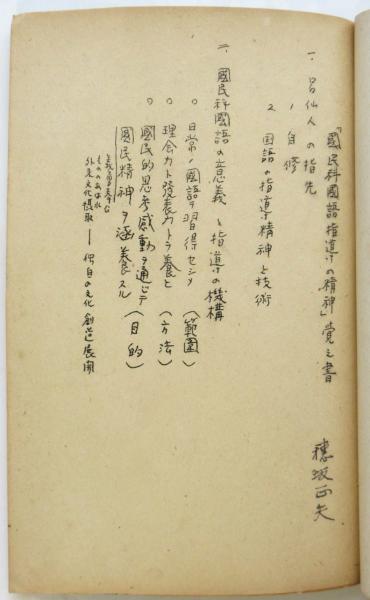 「國民科國語指導の精神」覚え書
穂坂正夫
一、名仙人の指先
1 自修
2 国語の指導精神と技術
二、國民科國語の意義と指導の機構
○ 日常ノ國語ヲ習得セシメ（範囲）
○ 理会力ト發表力トヲ養ヒ（方法）
○ 國民的思考感動ヲ通ジテ
國民精神ヲ涵養スル（目的）
もののあはれ
外来文化摂取 ― 独自の文化創造展開